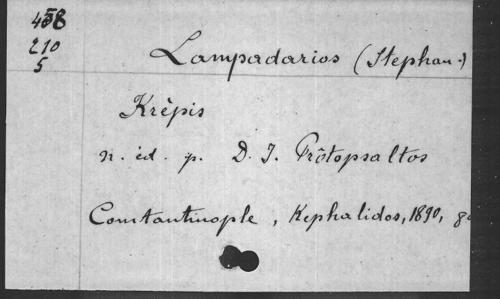 458
210
5
Lampadarios (Stephan.)
Krêpis
n. éd. p. D. I. Prôtopsaltos
Constantinople, Kephalidos, 1890, 8º